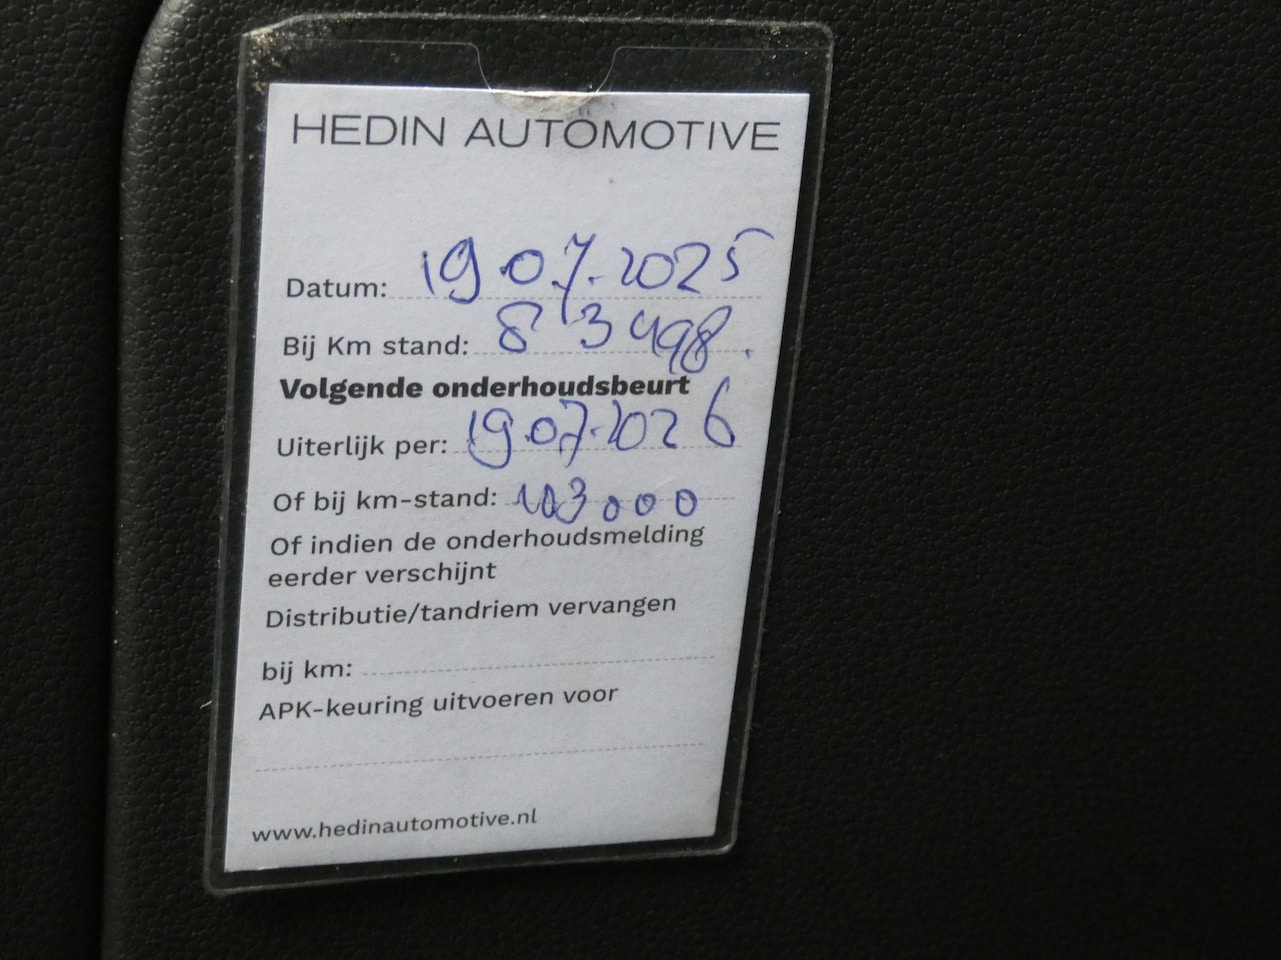 HEDIN AUTOMOTIVE
Datum: 19.07.2025
Bij Km stand: 83498.
Volgende onderhoudsbeurt
Uiterlijk per: 19.07.2026
Of bij km-stand: 103000
Of indien de onderhoudsmelding
eerder verschijnt
Distributie/tandriem vervangen
bij km:
APK-keuring uitvoeren voor
www.hedinautomotive.nl